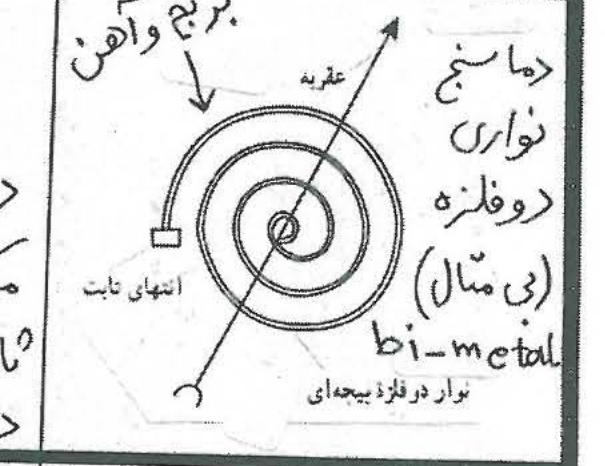 برنج و آهن
عقربه
دماسنج
نواری
دوفلزه
(بی متال)
bi-metal
انتهای ثابت
نوار دوفلزهٔ پیچه‌ای